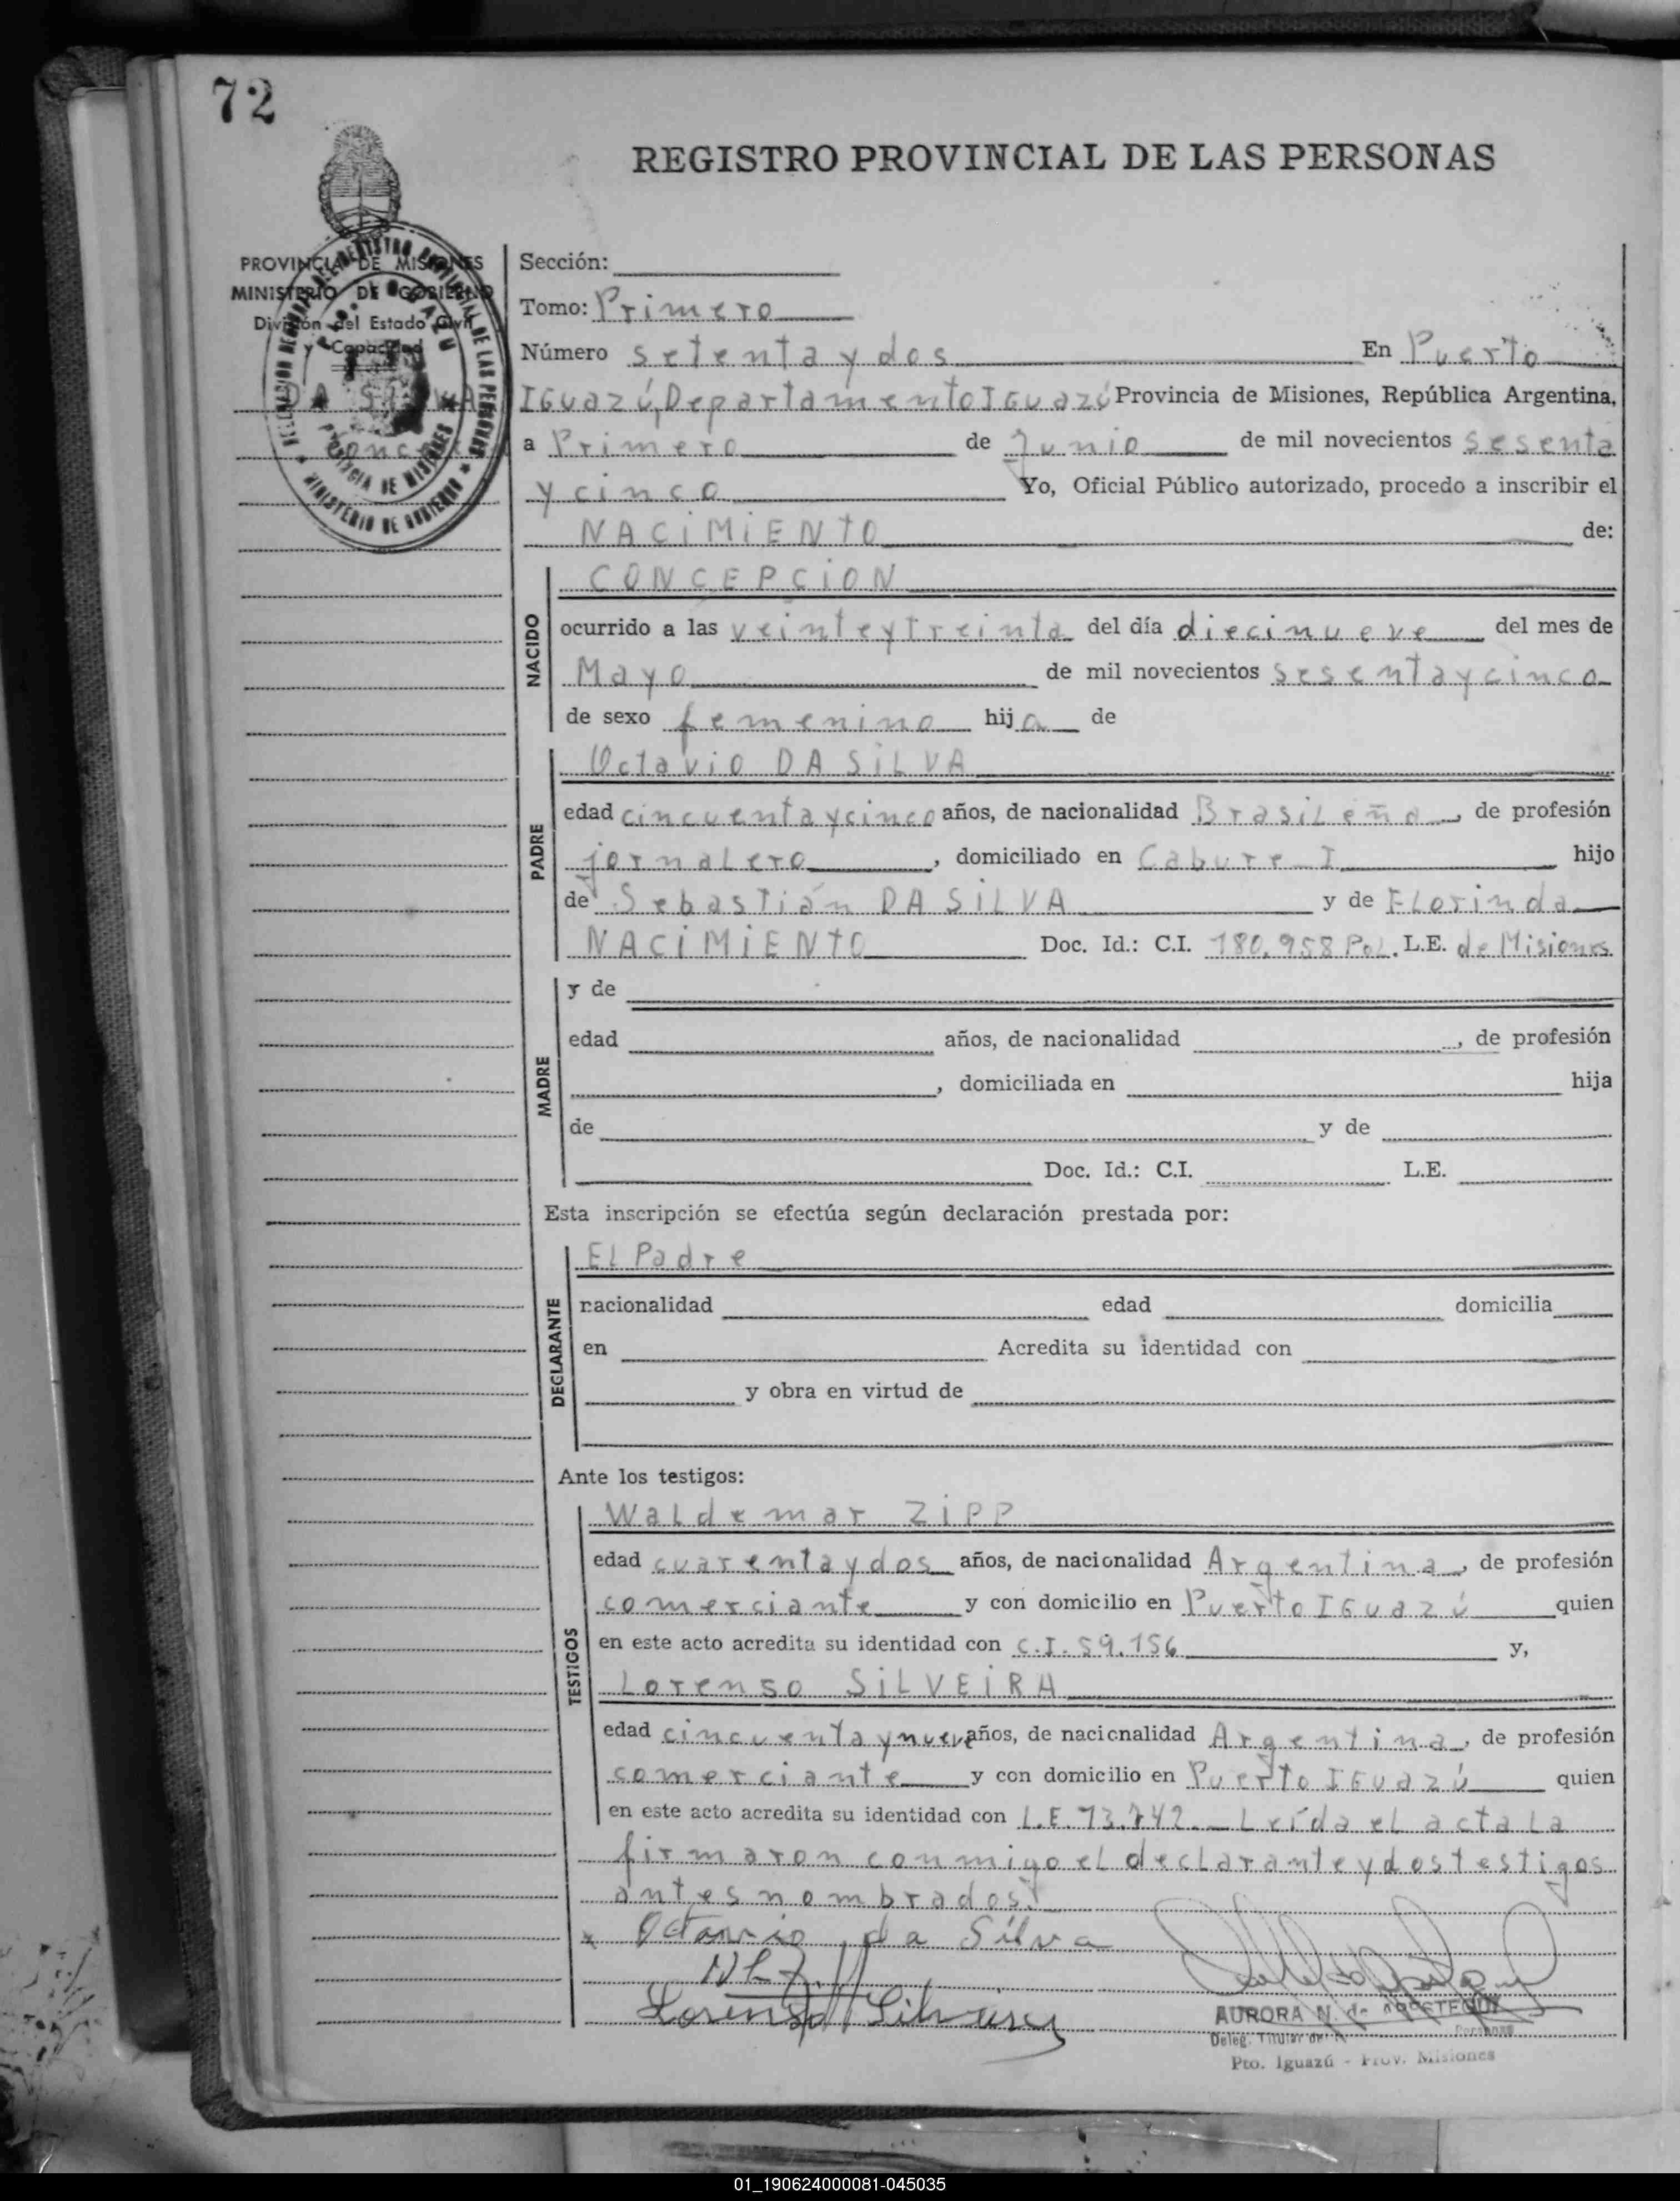 72
REGISTRO PROVINCIAL DE LAS PERSONAS
PROVINCIA DE MISIONES
MINISTERIO DE GOBIERNO
División del Estado Civil
y Capacidad
DA SILVA
Sección:
Tomo: Primero
Número setenta y dos En Puerto
IGuazú, Departamento IGuazú Provincia de Misiones, República Argentina,
a Primero de Junio de mil novecientos sesenta
y cinco Yo, Oficial Público autorizado, procedo a inscribir el
NACIMIENTO de:
NACIDO
CONCEPCION
ocurrido a las veinte y treinta del día diecinueve del mes de
Mayo de mil novecientos sesenta y cinco
de sexo femenino hija de
PADRE
Octavio DA SILVA
edad cincuenta y cinco años, de nacionalidad Brasileña, de profesión
jornalero, domiciliado en Cabure-I hijo
de Sebastián DA SILVA y de Florinda
NACIMIENTO Doc. Id.: C.I. 180.958 Pol. L.E. de Misiones
MADRE
y de
edad años, de nacionalidad , de profesión
, domiciliada en hija
de y de
Doc. Id.: C.I. L.E.
Esta inscripción se efectúa según declaración prestada por:
DECLARANTE
El Padre
nacionalidad edad domicilia
en Acredita su identidad con
y obra en virtud de
Ante los testigos:
TESTIGOS
Waldemar ZIPP
edad cuarenta y dos años, de nacionalidad Argentina, de profesión
comerciante y con domicilio en Puerto IGuazú quien
en este acto acredita su identidad con C.I. 59.156 y,
Lorenso SILVEIRA
edad cincuenta y nueve años, de nacionalidad Argentina, de profesión
comerciante y con domicilio en Puerto IGuazú quien
en este acto acredita su identidad con L.E. 73.742._ Leída el acta la
firmaron conmigo el declarante y dos testigos
antes nombrados.
x Octavio da Silva
Lorenso Silveira
AURORA N. de
Deleg. Titular
Pto. Iguazú - Prov. Misiones
01_190624000081-045035